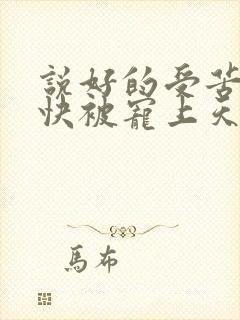 説好的受苦
快被寵上天
馬布